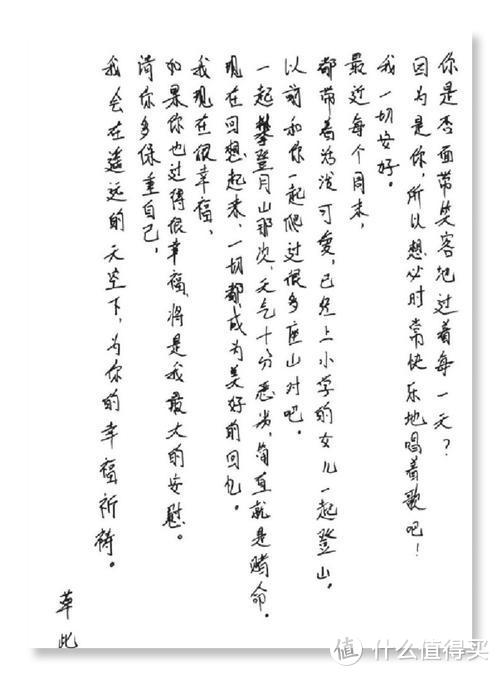 你是否面带笑容地过着每一天？
因为是你，所以想必时常快乐地唱着歌吧！
我一切安好。
最近每个周末，
都带着活泼可爱，已经上小学的女儿一起登山。
以前和你一起爬过很多座山对吧。
一起攀登月山那次，天气十分恶劣，简直就是赌命。
现在回想起来，一切都成为美好的回忆。
我现在很幸福，
如果你也过得很幸福，将是我最大的安慰。
请你多保重自己，
我会在遥远的天空下，为你的幸福祈祷。
草此
值 什么值得买